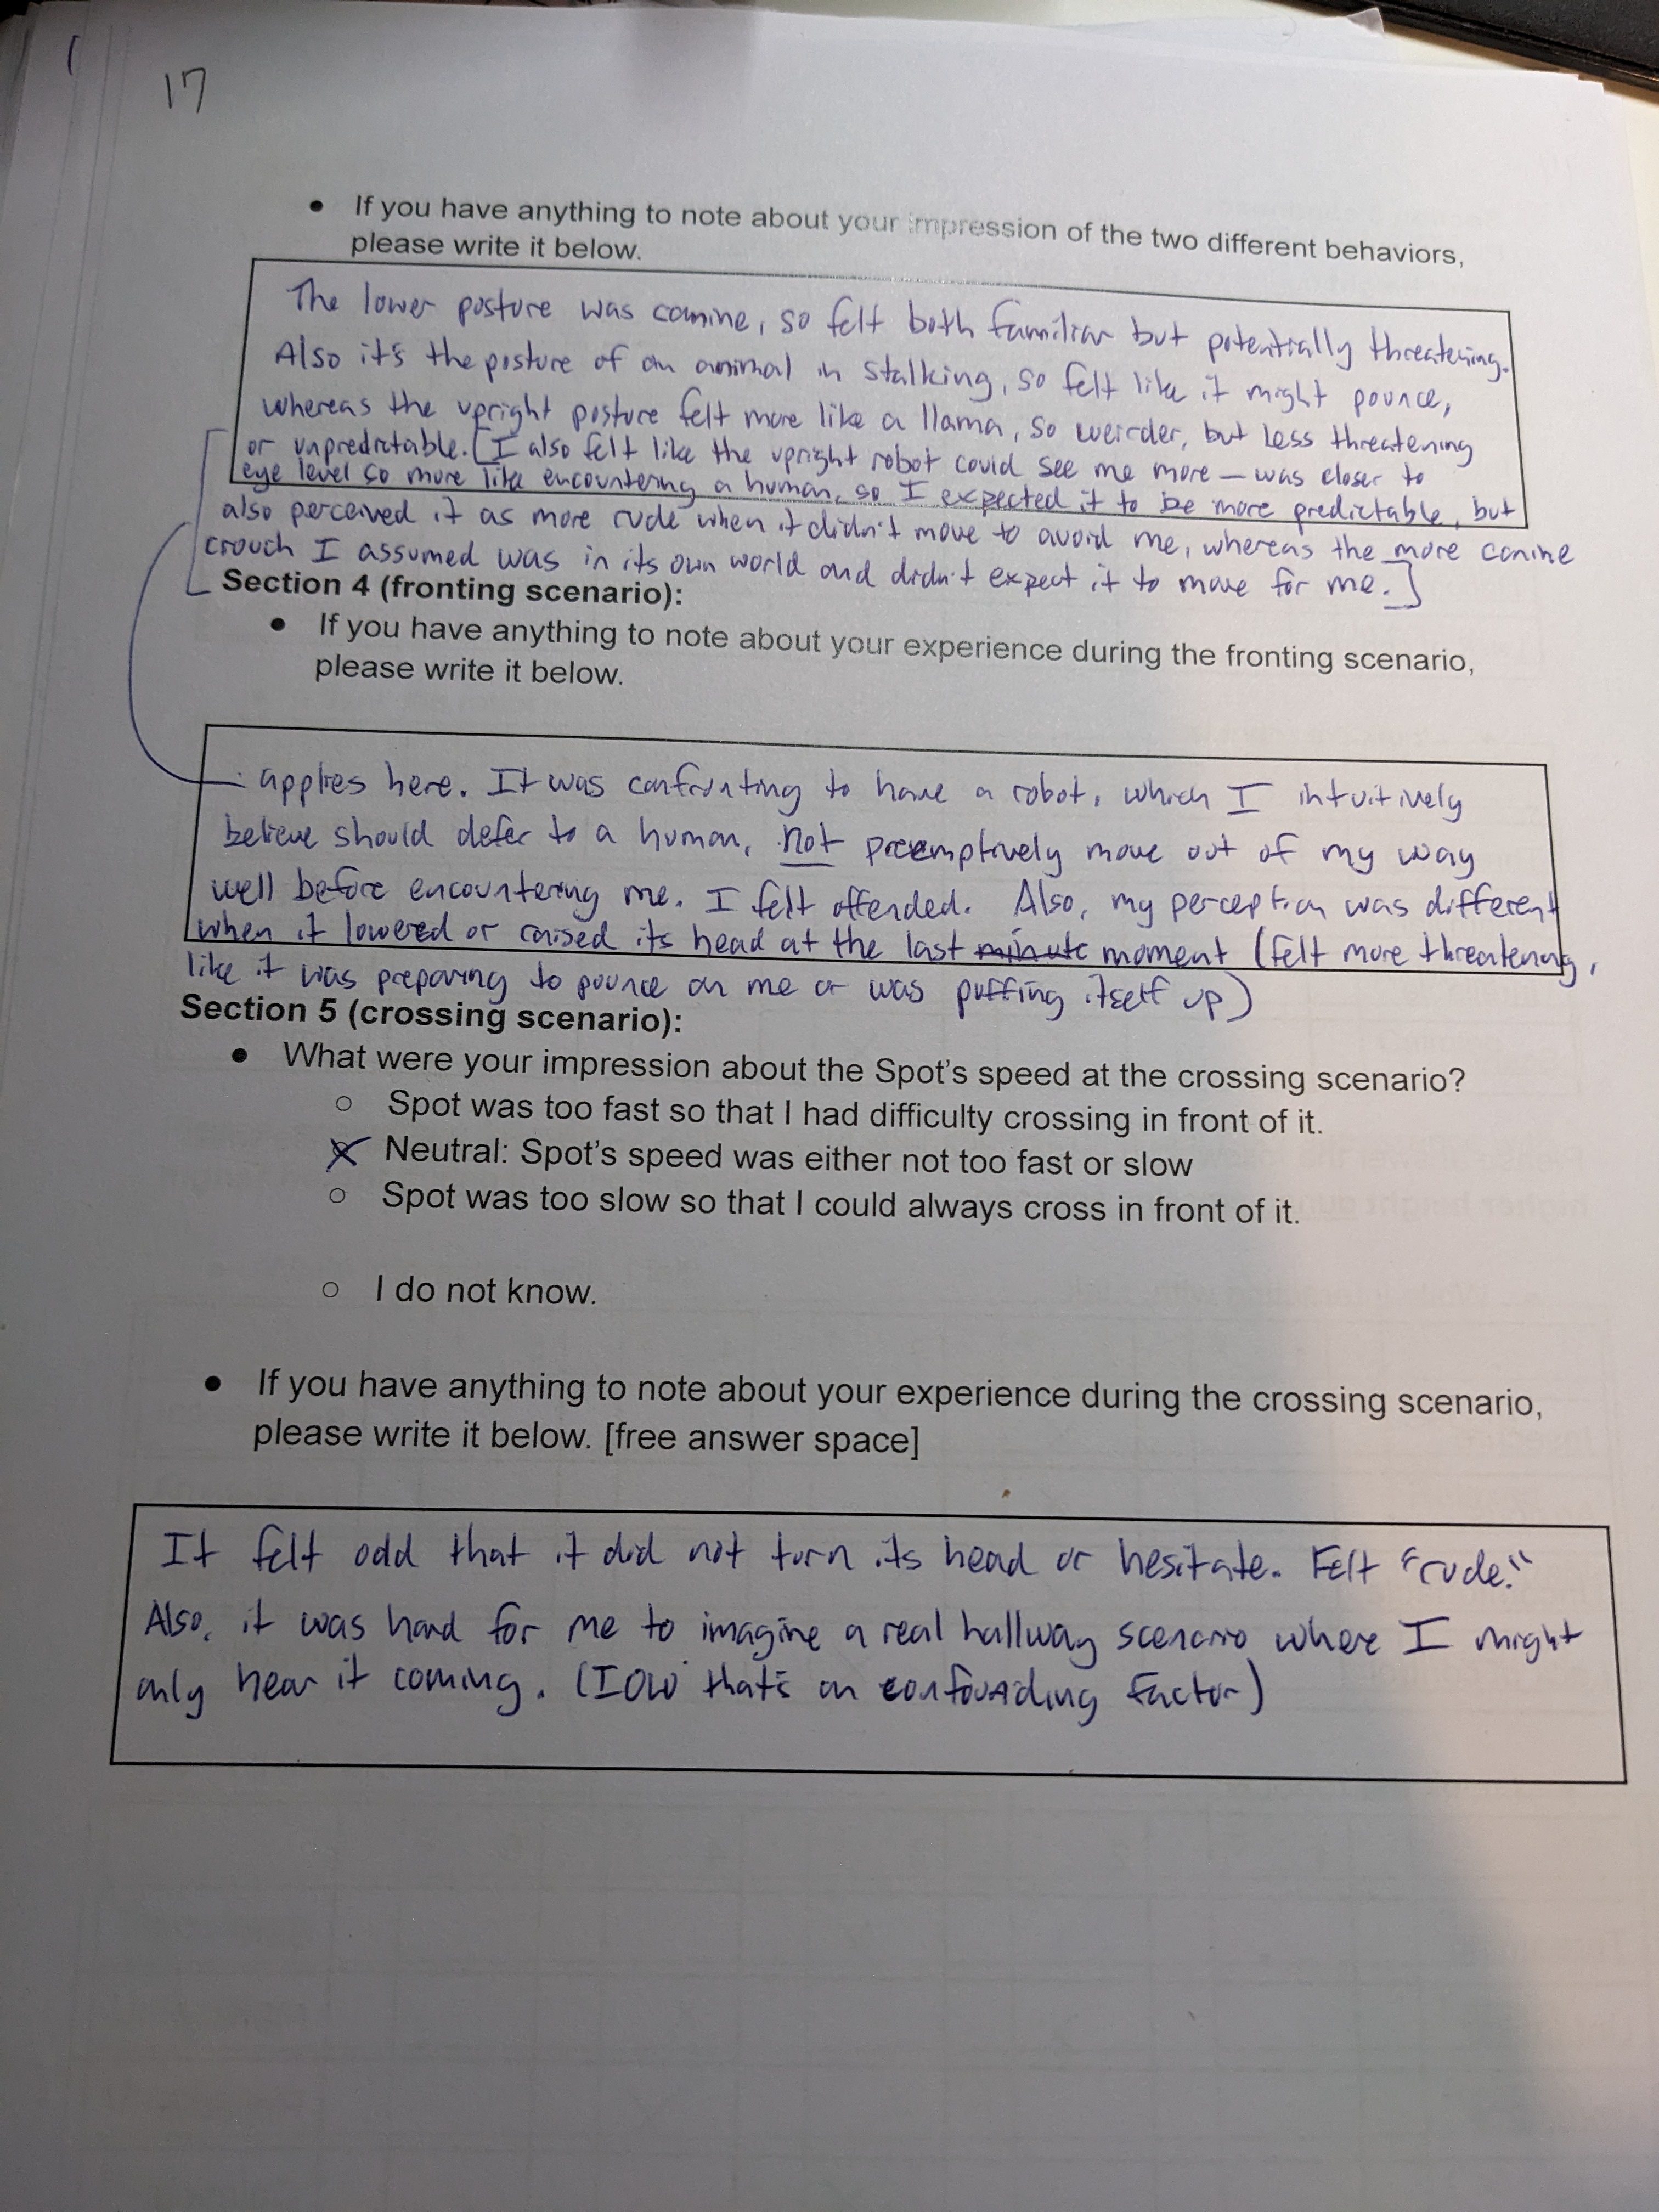 17
• If you have anything to note about your impression of the two different behaviors,
please write it below.
The lower posture was canine, so felt both familiar but potentially threatening.
Also it's the posture of an animal in stalking, so felt like it might pounce,
whereas the upright posture felt more like a llama, so weirder, but less threatening
or unpredictable. [I also felt like the upright robot could see me more — was closer to
eye level so more like encountering a human, so I expected it to be more predictable, but
also perceived it as more rude when it didn't move to avoid me, whereas the more canine
crouch I assumed was in its own world and didn't expect it to move for me.]
Section 4 (fronting scenario):
• If you have anything to note about your experience during the fronting scenario,
please write it below.
applies here. It was confronting to have a robot, which I intuitively
believe should defer to a human, not preemptively move out of my way
well before encountering me. I felt offended. Also, my perception was different
when it lowered or raised its head at the last minute moment (felt more threatening,
like it was preparing to pounce on me or was puffing itself up)
Section 5 (crossing scenario):
• What were your impression about the Spot's speed at the crossing scenario?
○ Spot was too fast so that I had difficulty crossing in front of it.
X Neutral: Spot's speed was either not too fast or slow
○ Spot was too slow so that I could always cross in front of it.
○ I do not know.
• If you have anything to note about your experience during the crossing scenario,
please write it below. [free answer space]
It felt odd that it did not turn its head or hesitate. Felt "rude."
Also, it was hard for me to imagine a real hallway scenario where I might
only hear it coming. (IOW that's an confounding factor)